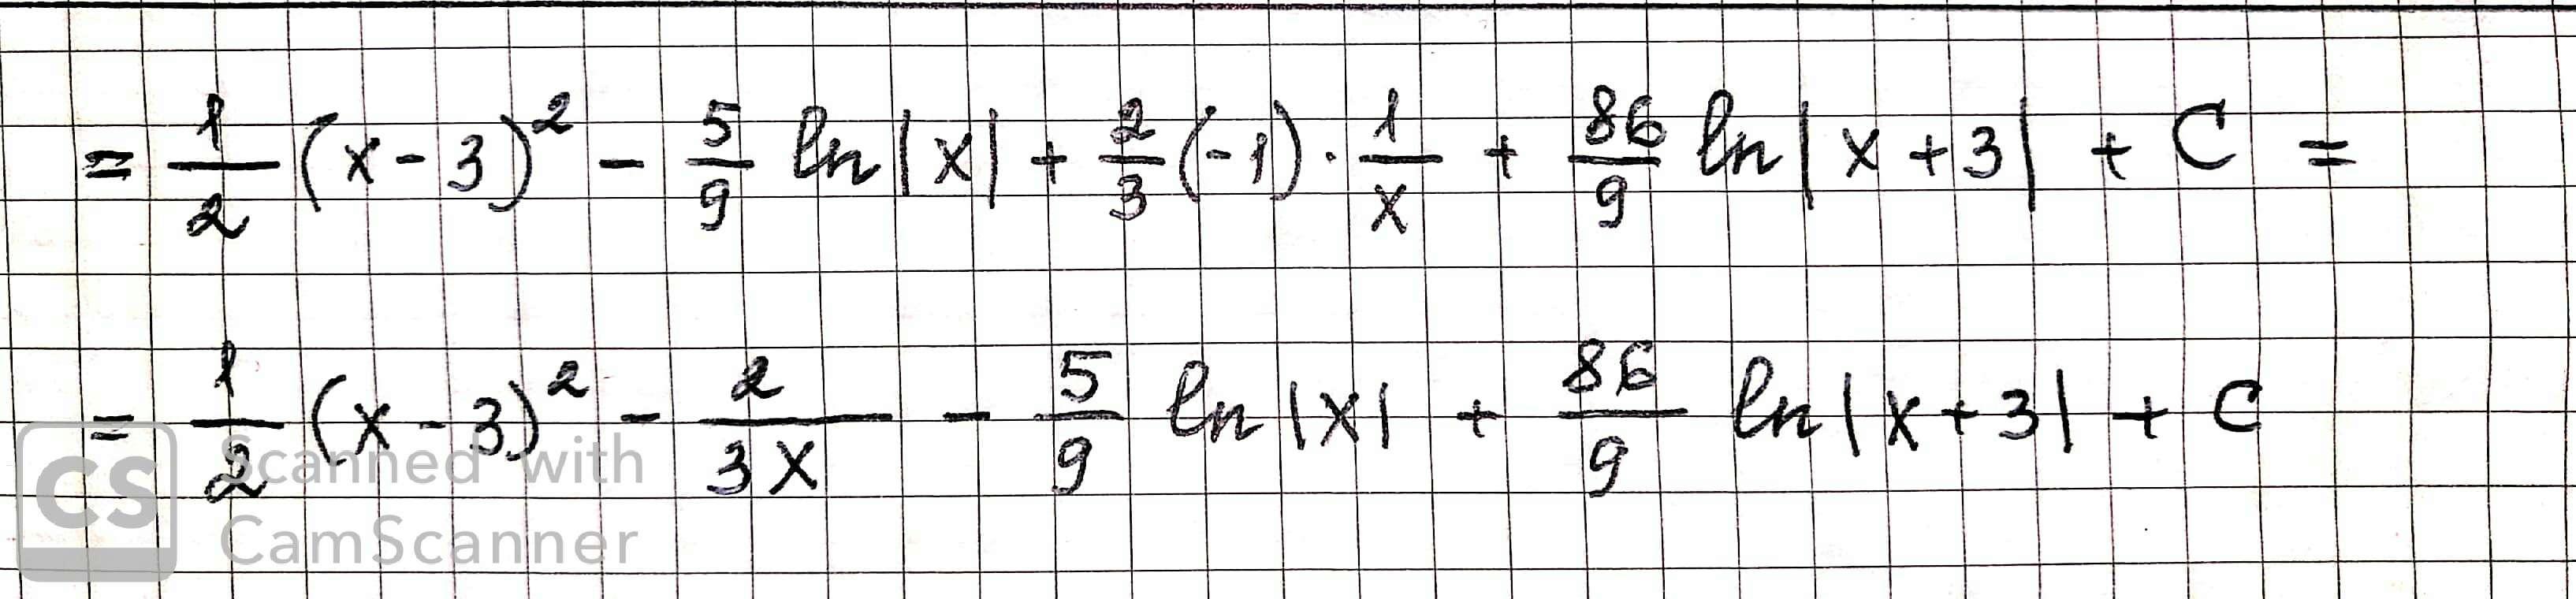 = 1/2 (x - 3)^2 - 5/9 ln|x| + 2/3 (-1) · 1/x + 86/9 ln|x + 3| + C =
= 1/2 (x - 3)^2 - 2/3x - 5/9 ln|x| + 86/9 ln|x + 3| + C
CS Scanned with
CamScanner